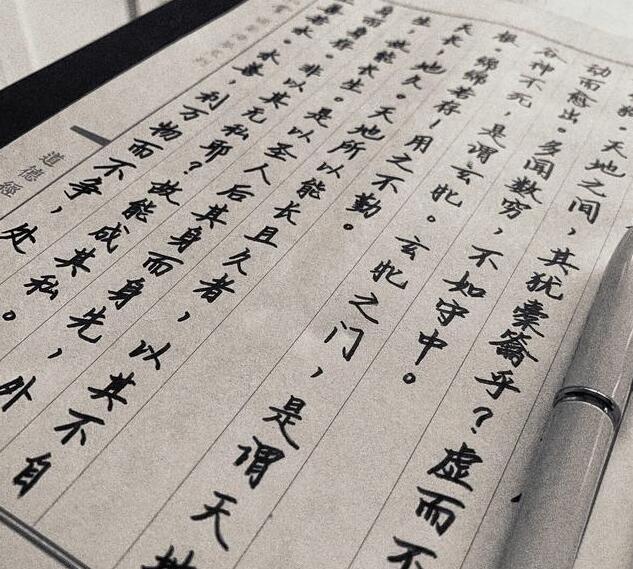 天地之间，其犹橐籥乎？虚而不
动而愈出。多闻数穷，不如守中。
谷神不死，是谓玄牝。玄牝之门，是谓天地
根。绵绵若存！用之不勤。
天长，地久。天地所以能长且久者，以其不自
生，故能长生。是以圣人后其身而身先，外
身而身存。非以其无私邪？故能成其私。
善若水。水善，利万物而不争，处
道德經